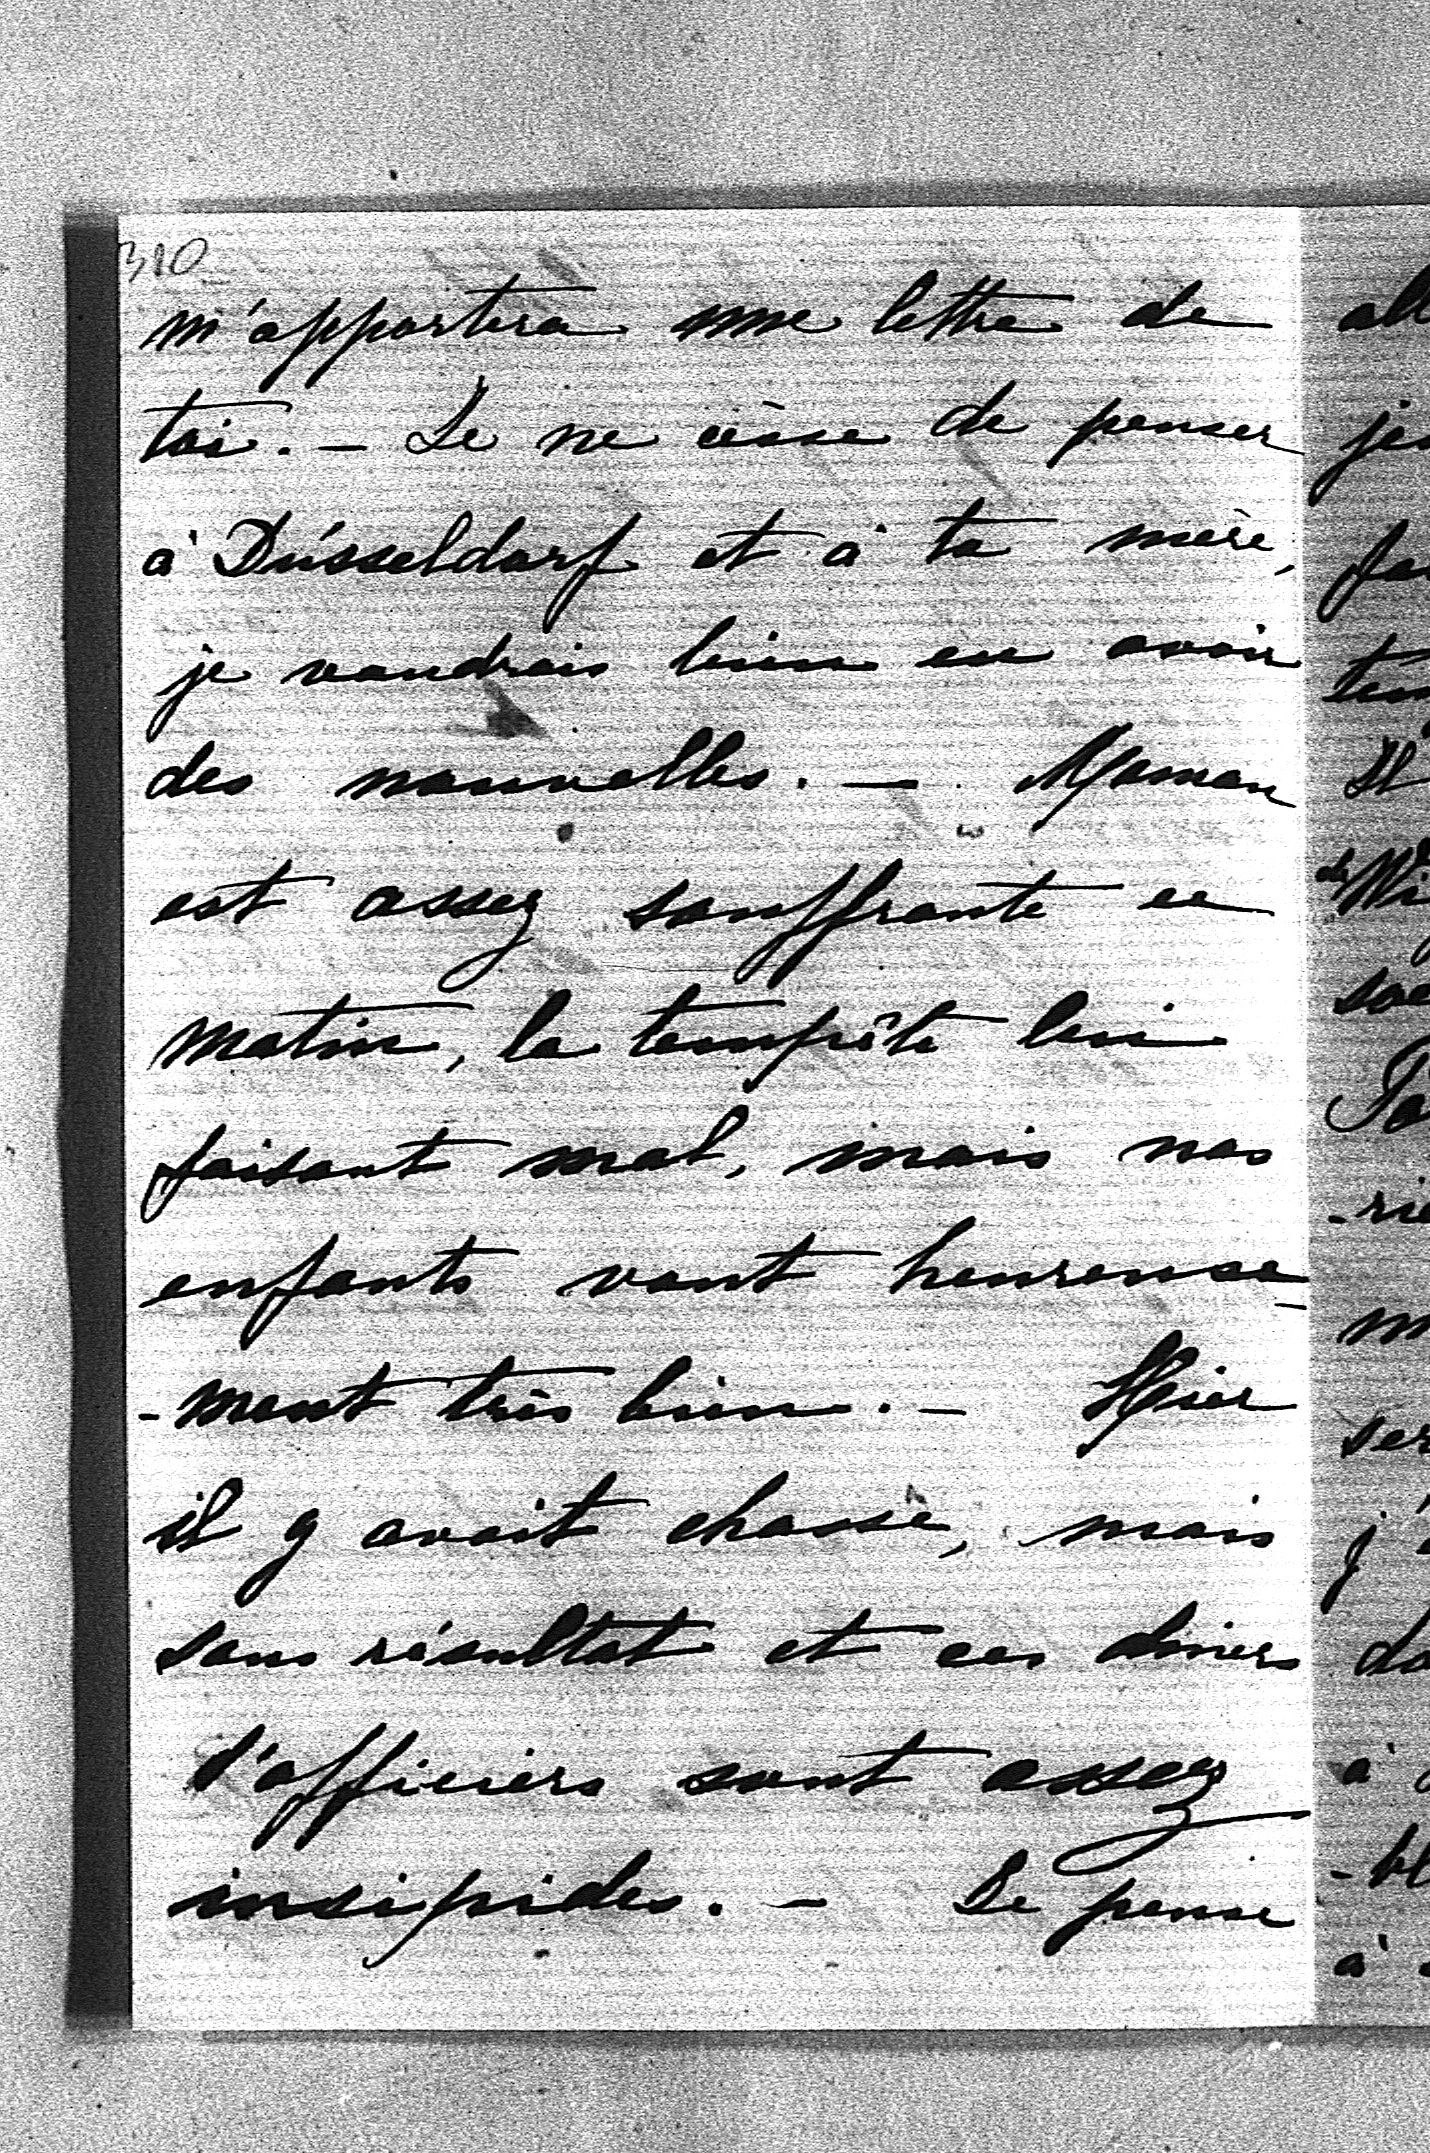 310
m'apportera une lettre de
toi. – Je ne cesse de penser
à Düsseldorf et à ta mère,
je voudrais bien en avoir
des nouvelles. – Maman
est assez souffrante ce
matin, la tempête lui
faisant mal, mais nos
enfants vont heureuse-
-ment très bien. – Hier
il y avait chasse, mais
sans résultat et ces diners
d'officiers sont assez
insipides. – Je pense